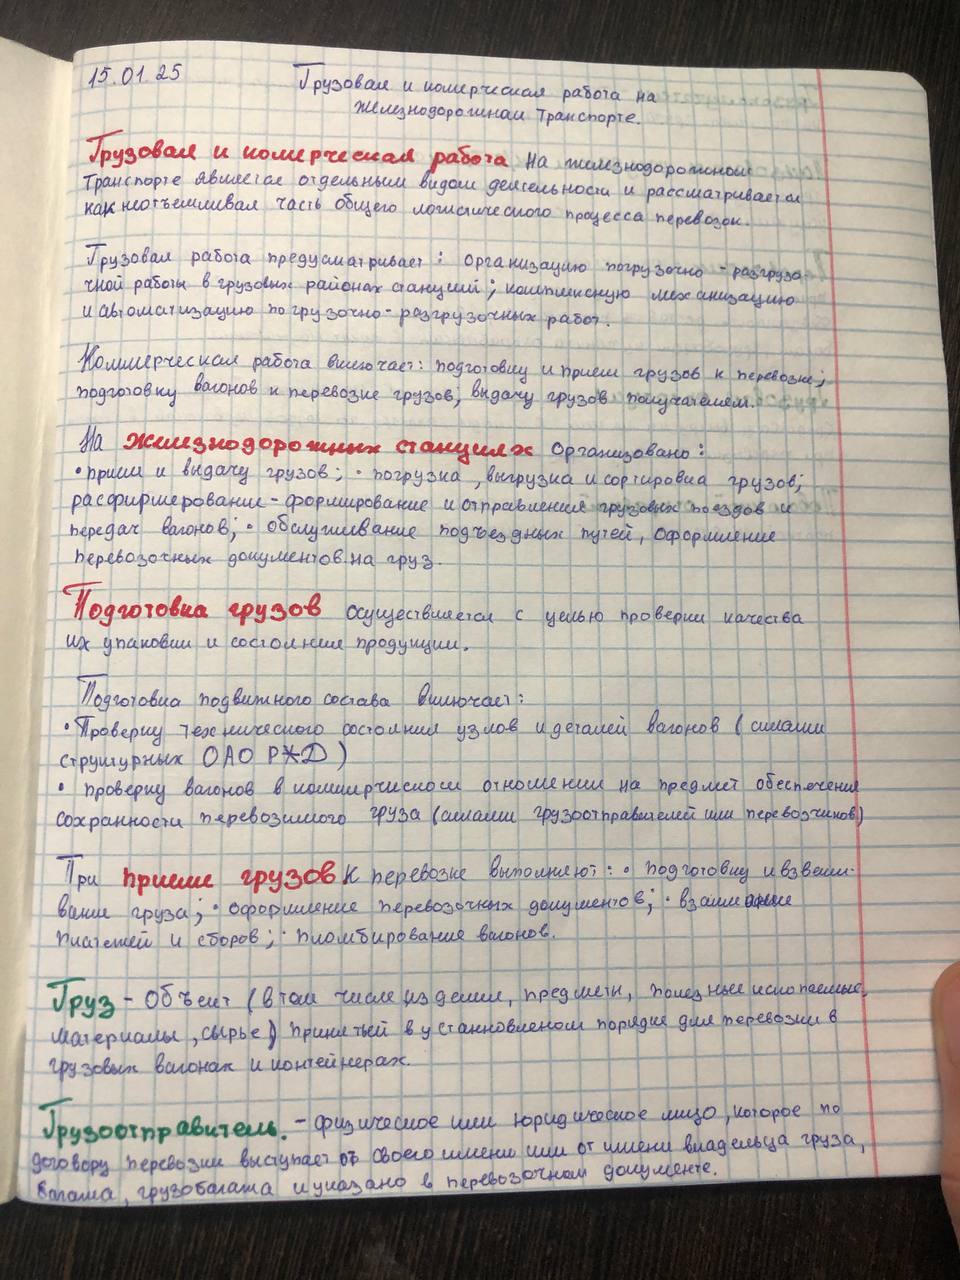 15.01.25
Грузовая и комерческая работа на
железнодорожном транспорте.
Грузовая и комерческая работа на железнодорожном
транспорте является отдельным видом деятельности и рассматривается
как неотъемливая часть общего логистического процесса перевозок.
Грузовая работа предусматривает: организацию погрузочно-разгрузо-
чной работы в грузовых районах станций; комплексную механизацию
и автоматизацию погрузочно-разгрузочных работ.
Коммерческая работа включает: подготовку и прием грузов к перевозке;
подготовку вагонов к перевозке грузов; выдачу грузов получателем.
На железнодорожных станциях организовано:
• прием и выдачу грузов; • погрузка, выгрузка и сортировка грузов;
расфирмерование-формирование и отправление грузовых поездов и
передач вагонов; • обслуживание подъездных путей, оформление
перевозочных документов на груз.
Подготовка грузов осуществляется с целью проверки качества
их упаковки и состояния продукции.
Подготовка подвижного состава включает:
• Проверку технического состояния узлов и деталей вагонов (силами
структурных ОАО РЖД)
• проверку вагонов в коммерческом отношении на предмет обеспечения
сохранности перевозимого груза (силами грузоотправителей или перевозчиков)
При приеме грузов к перевозке выполняют: • подготовку и взвеши-
вание груза; • оформление перевозочных документов;
платежей и сборов; • пломбирование вагонов.
Груз - Объект (в том числе изделия, предметы, полезные ископаемые,
материалы, сырье) принятый в установленом порядке для перевозки в
грузовых вагонах и контейнерах.
Грузоотправитель. - физическое или юридическое лицо, которое по
договору перевозки выступает от своего имени или от имени владельца груза,
багажа, грузобагажа и указано в перевозочном документе.